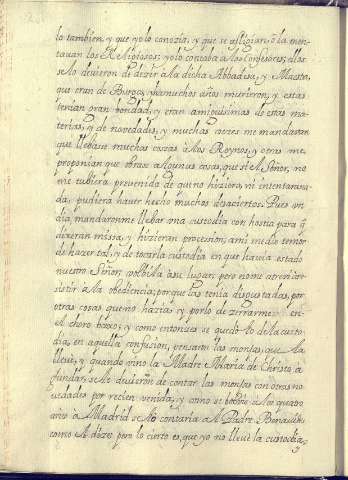 lo tambien, y que yo lo conozia, y que se afligian, o la men-
tauan los Religiosos; yo lo contaba a los Confesores; ellos
se lo deuieron de dezir a la dicha Abbadesa, y Maestra,
que eran de Burgos, y ha muchos años murieron, y estas
tenian gran bondad, y eran amiquisimas de estas ma-
terias, y de novedades, y muchas vezes me mandaban
que llebase muchas cosas a los Reynos, y otras me
proponian que obrase algunas cosas, que si el Señor, no
me tubiera prevenido de que no hiziera, ni intentara na-
da, pudiera haver hecho muchos desaciertos. Pues un
dia mandaronme llebar una custodia con hostia para q
dixeran missa, y hizieran procesion; a mi me dio temor
de hazer tal, y de tocar la custodia en que havia estado
nuestro Señor; bolbila a su lugar; pero no me atrevi a re-
sistir a la obediencia; porque las tenia disgustadas, por
otras cosas que no hazia, y por lo de zerrarme en
el choro baxo; y como entonces se quedò lo de la custo-
dia, en aquella confusion, pensaran las monjas, que la
lleve, y quando vino la Madre Maria de Christo a
fundar, se le deuieron de contar las monjas con otras no-
vedades por recien venida; y como se bolbiò a los quatro
años a Madrid se lo contaria al Padre Bonauen-
como el dize; pero lo cierto es, que yo no lleve la custodia,